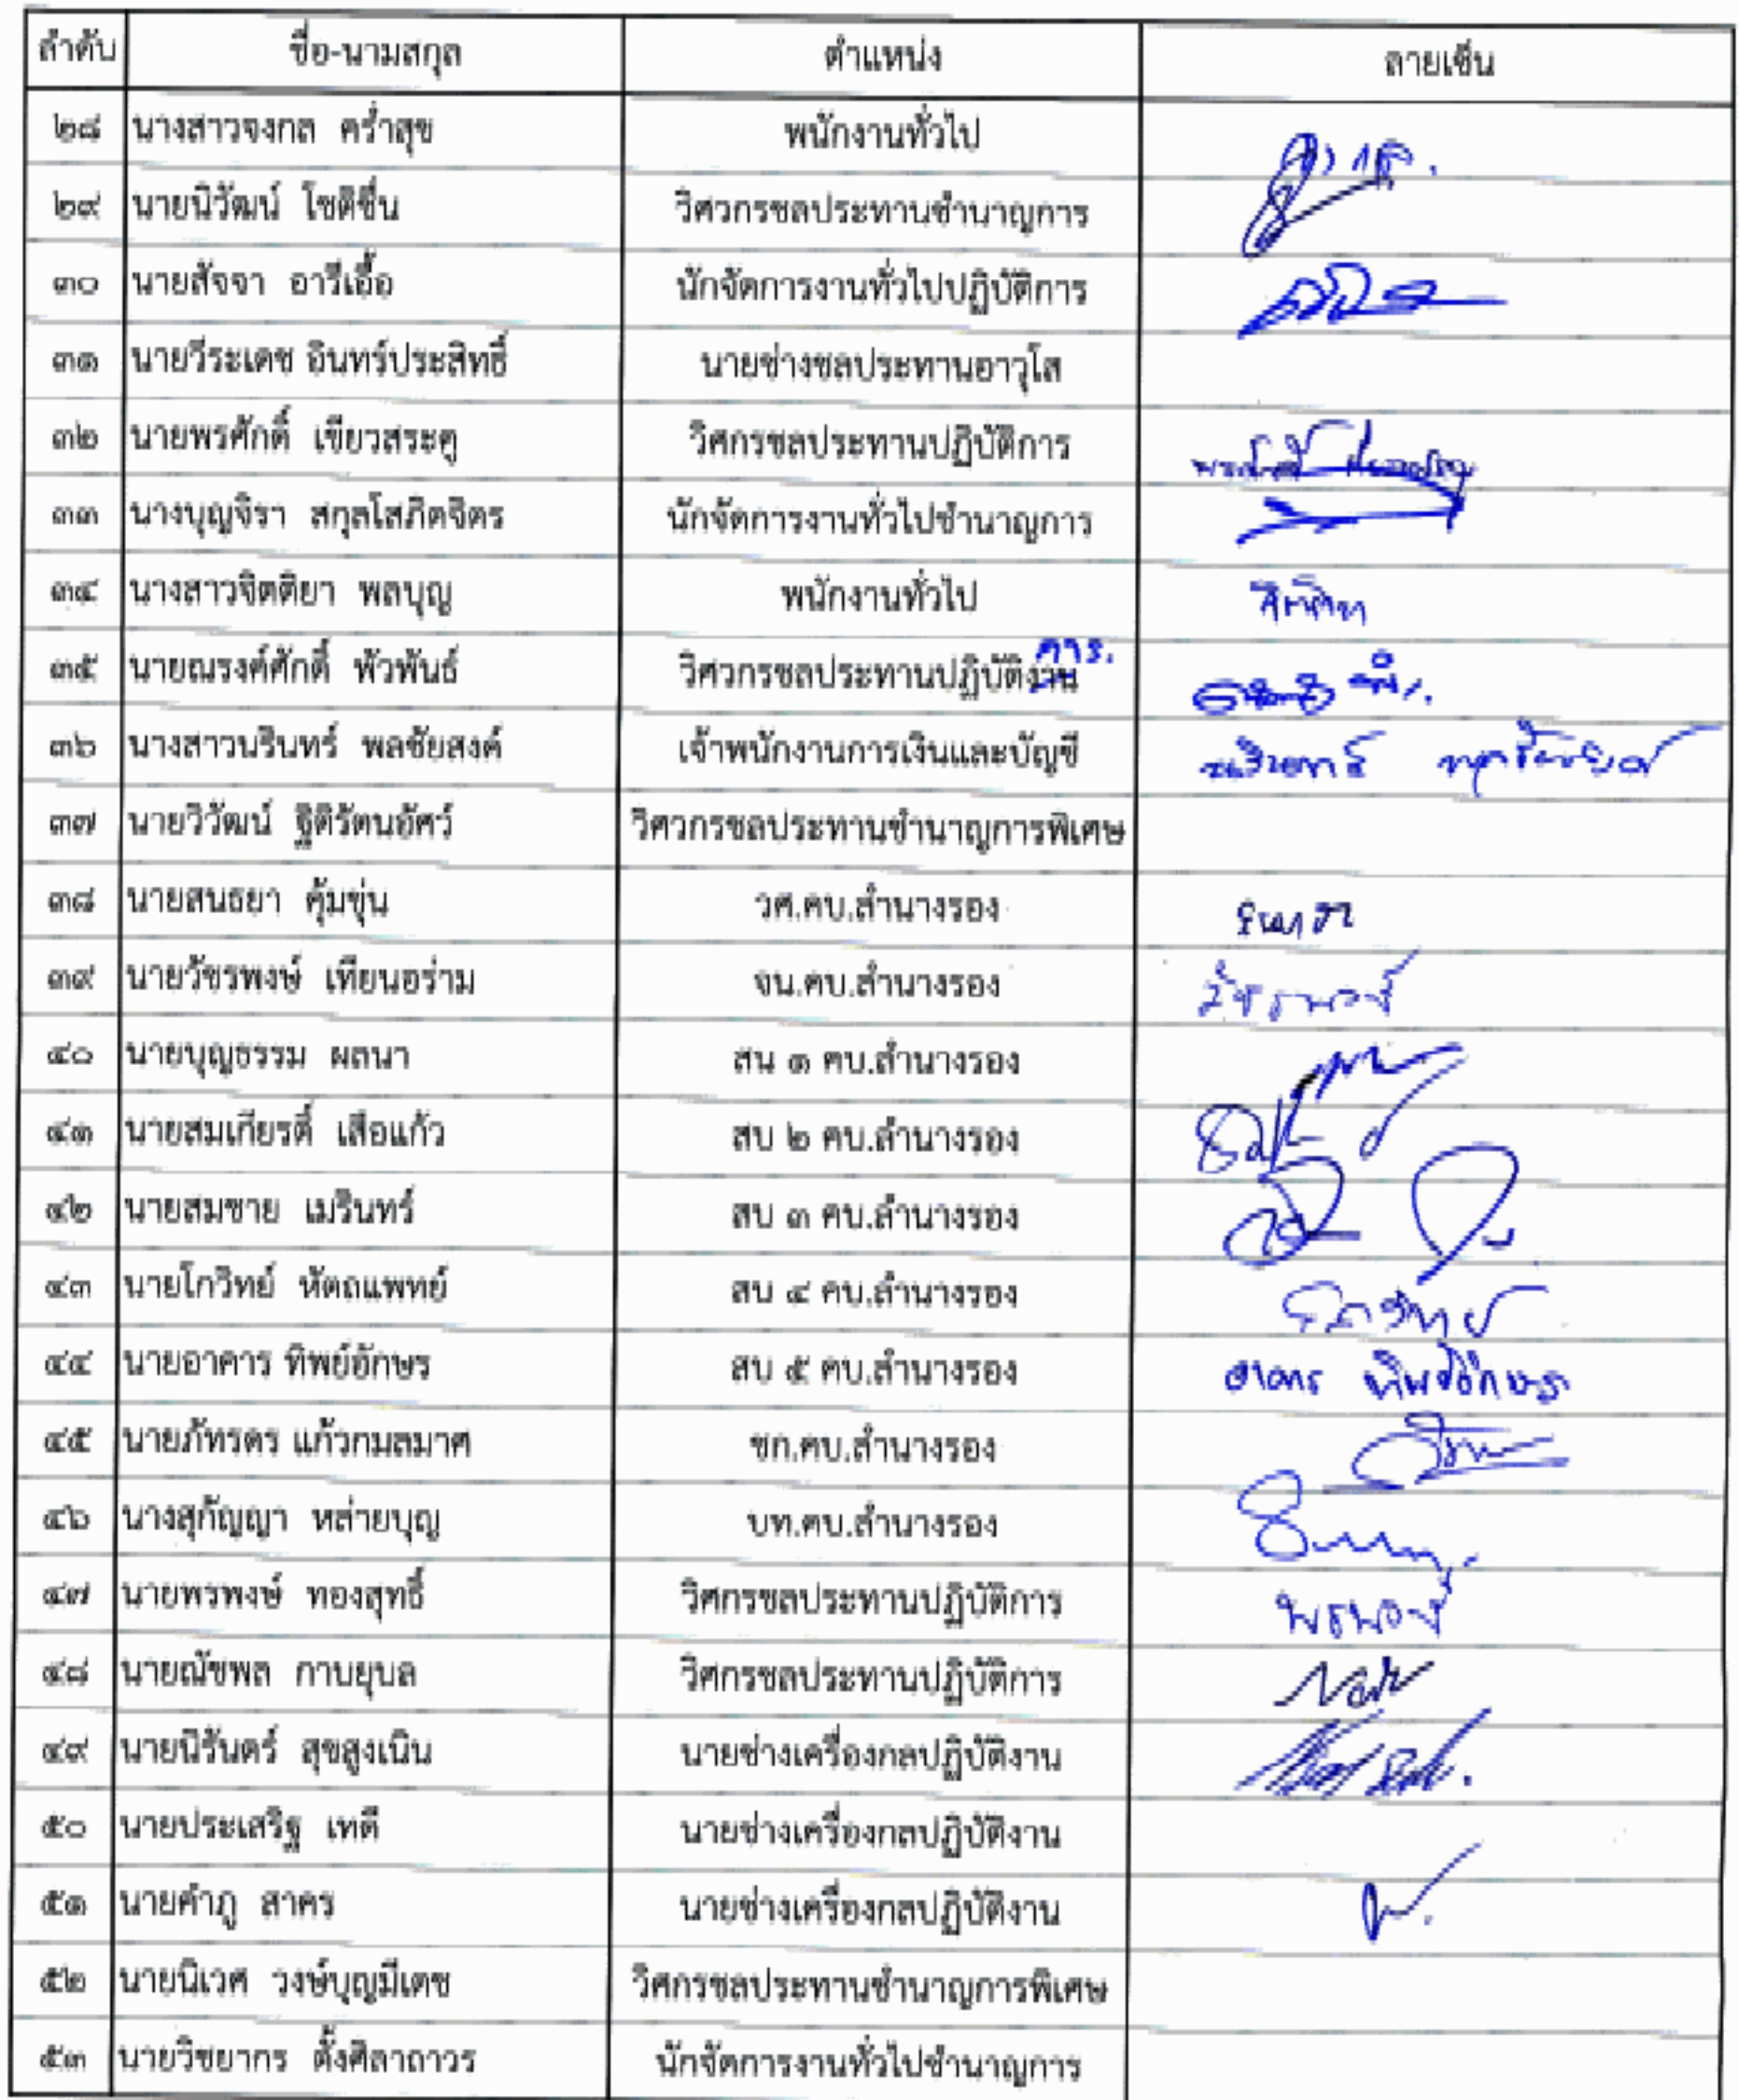 ลำดับ ชื่อ-นามสกุล ตำแหน่ง ลายเซ็น
๒๘ นางสาวจงกล คร่ำสุข พนักงานทั่วไป
๒๙ นายนิวัฒน์ โชติชื่น วิศวกรชลประทานชำนาญการ
๓๐ นายสัจจา อารีเอื้อ นักจัดการงานทั่วไปปฏิบัติการ
๓๑ นายวีระเดช อินทร์ประสิทธิ์ นายช่างชลประทานอาวุโส
๓๒ นายพรศักดิ์ เขียวสระคู วิศกรชลประทานปฏิบัติการ
๓๓ นางบุญจิรา สกุลโสภิตจิตร นักจัดการงานทั่วไปชำนาญการ
๓๔ นางสาวจิตติยา พลบุญ พนักงานทั่วไป
๓๕ นายณรงค์ศักดิ์ พัวพันธ์ วิศวกรชลประทานปฏิบัติงาน การ.
๓๖ นางสาวนรินทร์ พลชัยสงค์ เจ้าพนักงานการเงินและบัญชี
๓๗ นายวิวัฒน์ ฐิติรัตนอัศว์ วิศวกรชลประทานชำนาญการพิเศษ
๓๘ นายสนธยา คุ้มขุ่น วศ.คบ.ลำนางรอง
๓๙ นายวัชรพงษ์ เทียนอร่าม จน.คบ.ลำนางรอง วัชรพงษ์
๔๐ นายบุญธรรม ผลนา สน ๑ คบ.ลำนางรอง
๔๑ นายสมเกียรติ์ เสือแก้ว สบ ๒ คบ.ลำนางรอง
๔๒ นายสมชาย เมรินทร์ สบ ๓ คบ.ลำนางรอง
๔๓ นายโกวิทย์ หัตถแพทย์ สบ ๔ คบ.ลำนางรอง โกวิทย์
๔๔ นายอาคาร ทิพย์อักษร สบ ๕ คบ.ลำนางรอง อาคาร ทิพย์อักษร
๔๕ นายภัทรดร แก้วกมลมาศ ชก.คบ.ลำนางรอง
๔๖ นางสุกัญญา หล่ายบุญ บท.คบ.ลำนางรอง
๔๗ นายพรพงษ์ ทองสุทธิ์ วิศกรชลประทานปฏิบัติการ พรพงษ์
๔๘ นายณัชพล กาบยุบล วิศกรชลประทานปฏิบัติการ
๔๙ นายนิรันดร์ สุขสูงเนิน นายช่างเครื่องกลปฏิบัติงาน
๕๐ นายประเสริฐ เทดี นายช่างเครื่องกลปฏิบัติงาน
๕๑ นายคำภู สาคร นายช่างเครื่องกลปฏิบัติงาน
๕๒ นายนิเวศ วงษ์บุญมีเดช วิศกรชลประทานชำนาญการพิเศษ
๕๓ นายวิชยากร ตั้งศิลาถาวร นักจัดการงานทั่วไปชำนาญการ